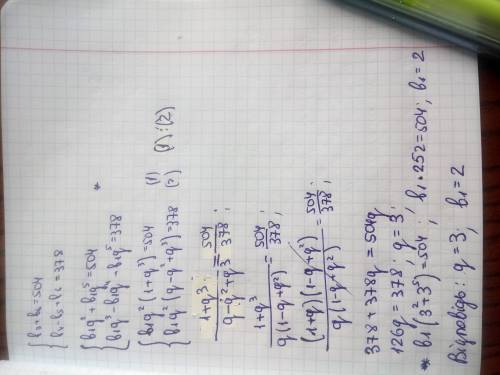 { b₃+b₆=504
{ b₄-b₅+b₆=378
{ b₁q²+b₁q⁵=504
{ b₁q³-b₁q⁴+b₁q⁵=378 *
{ b₁q²(1+q³)=504 (1)
{ b₁q²(q-q²+q³)=378 (2) (1):(2)
(1+q³)/(q-q²+q³)=504/378;
(1+q³)/(q(1-q+q²))=504/378;
((1+q)(1-q+q²))/(q(1-q+q²))=504/378;
378+378q=504q
126q=378; q=3;
* b₁(3²+3⁵)=504; b₁·252=504; b₁=2
Відповідь: q=3; b₁=2